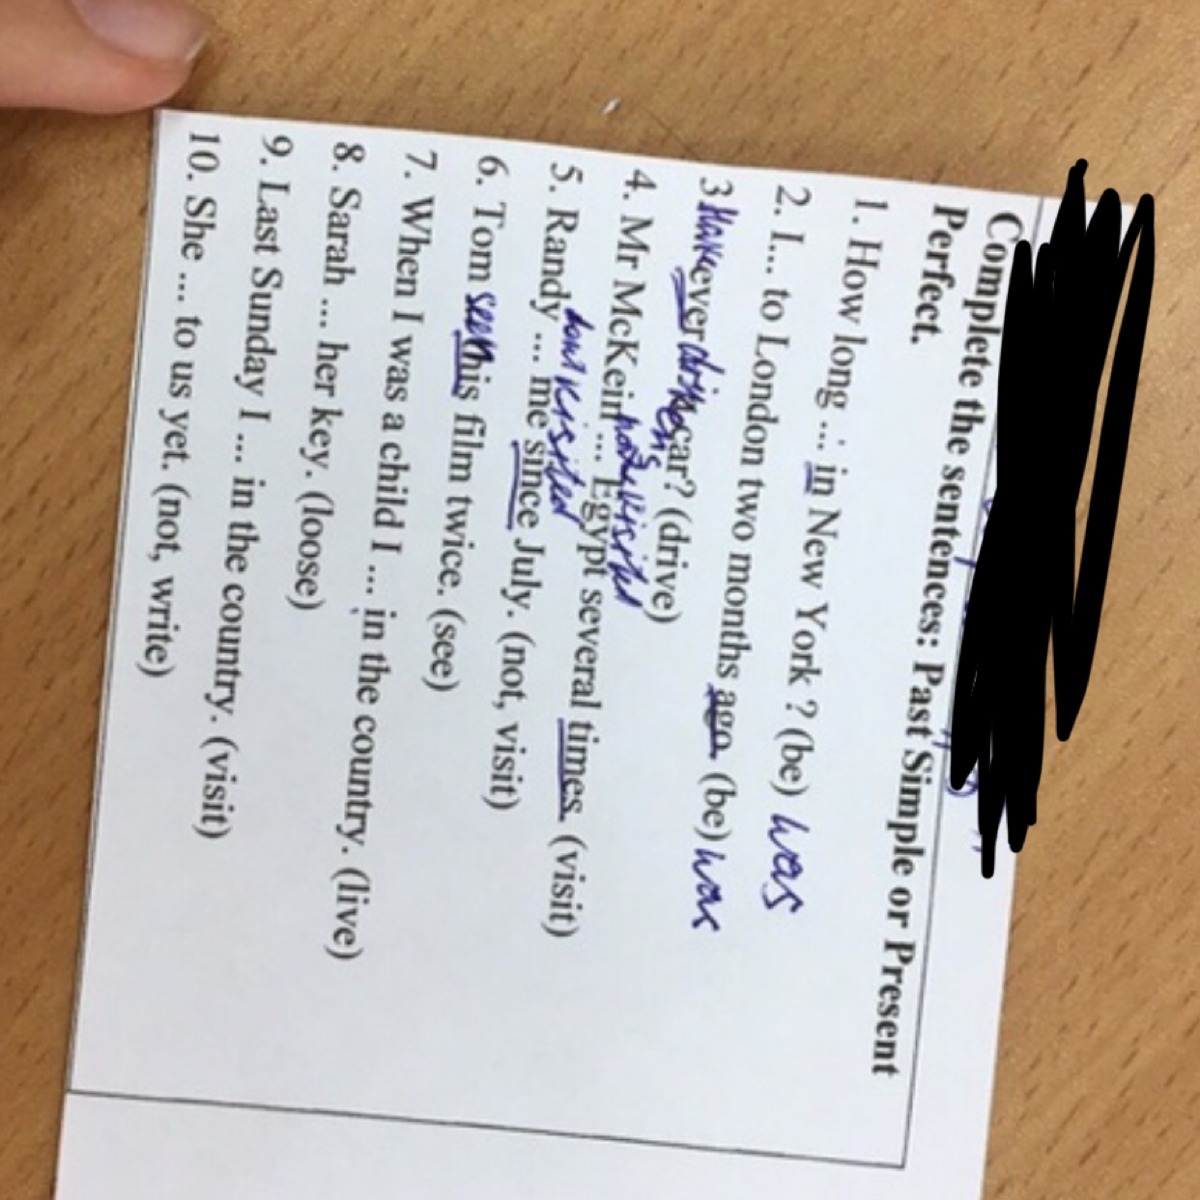 Complete the sentences: Past Simple or Present
Perfect.
1. How long ... in New York ? (be) was
2. I... to London two months ago. (be) was
3 Have ever driven car? (drive)
4. Mr McKein ... Egypt several times. (visit)
visited
5. Randy ... me since July. (not, visit)
visited
6. Tom seen this film twice. (see)
7. When I was a child I ... in the country. (live)
8. Sarah ... her key. (loose)
9. Last Sunday I ... in the country. (visit)
10. She ... to us yet. (not, write)